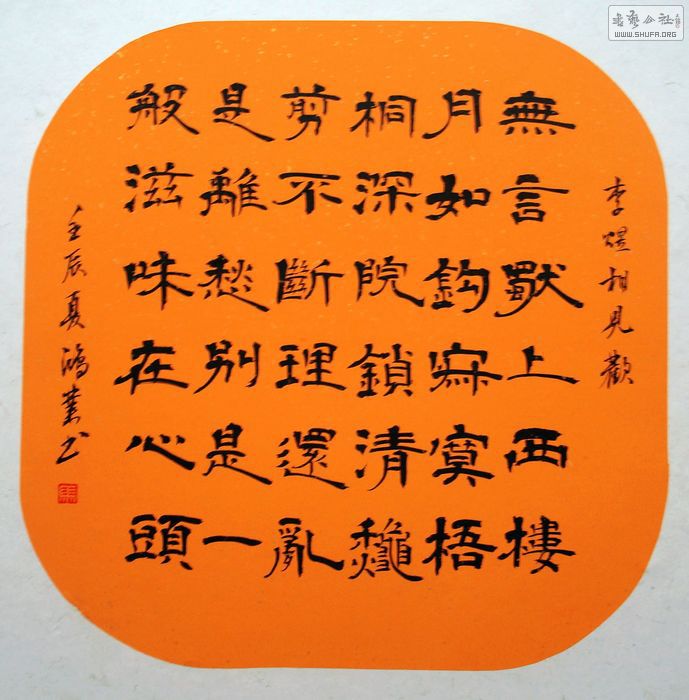 李煜相見歡
無言獨上西樓
月如鈎寂寞梧
桐深院鎖清龝
剪不斷理還亂
是離愁别是一
般滋味在心頭
壬辰夏鴻業书
書藝公社
WWW.SHUFA.ORG